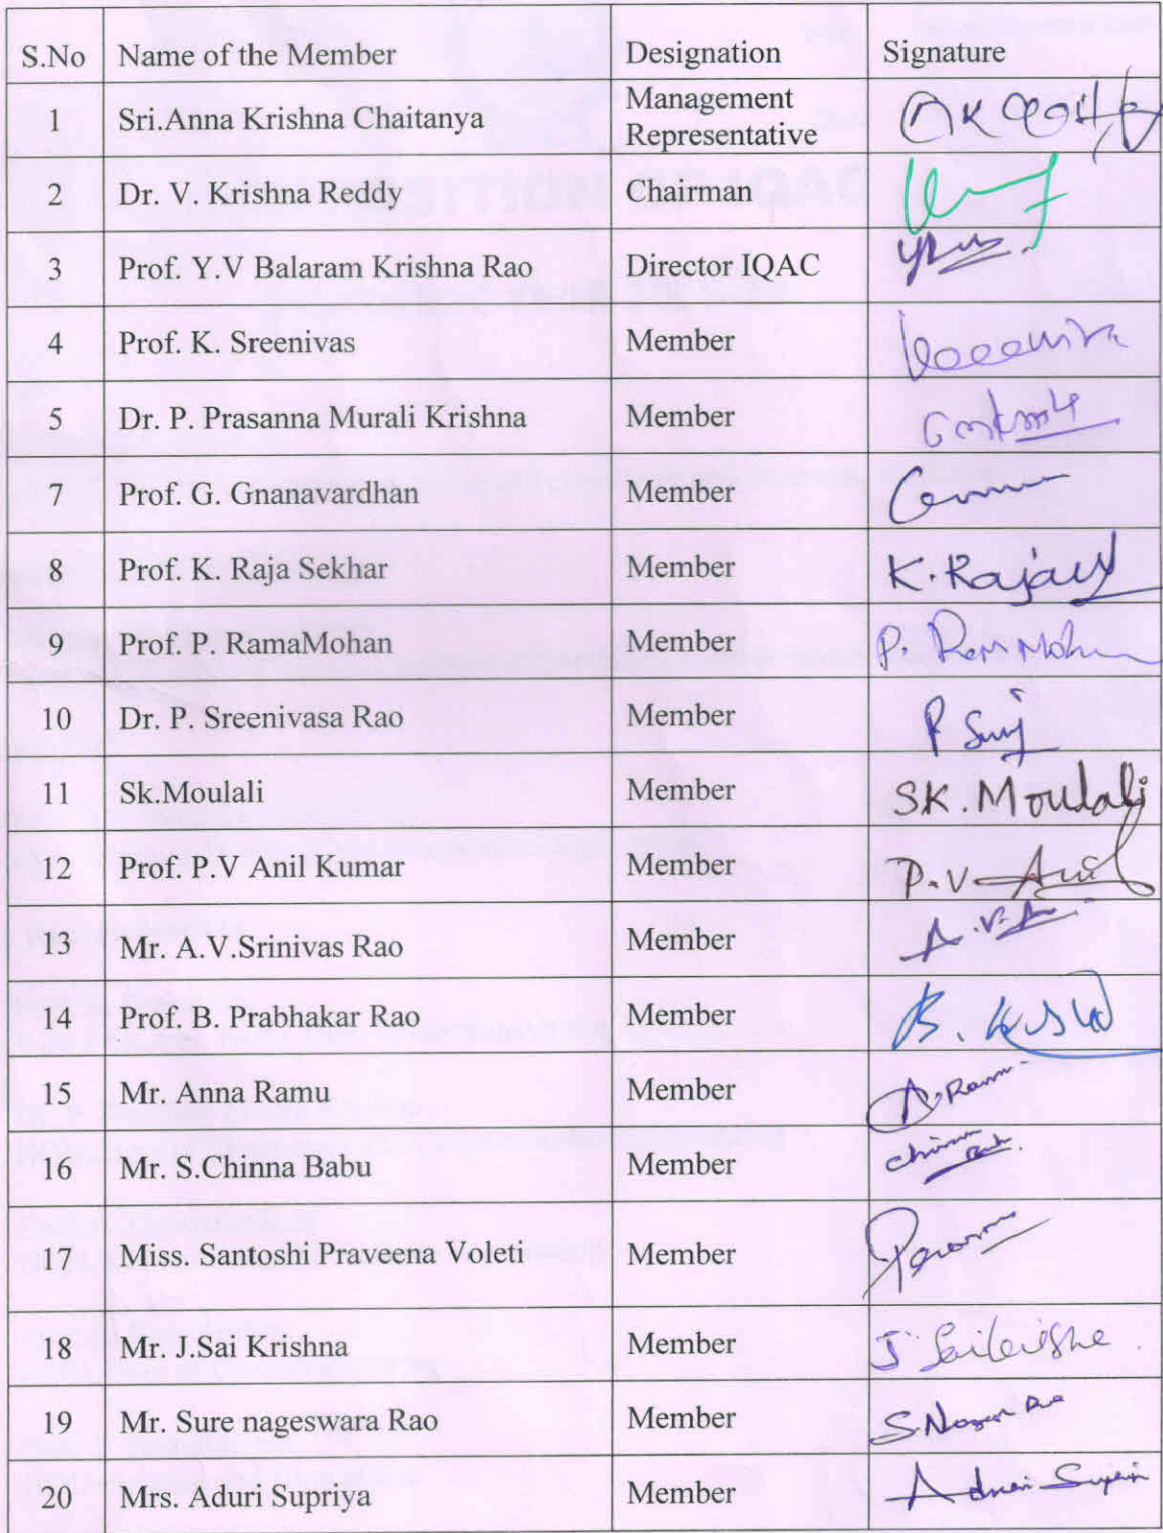 S.No Name of the Member Designation Signature
1 Sri.Anna Krishna Chaitanya Management
Representative
2 Dr. V. Krishna Reddy Chairman
3 Prof. Y.V Balaram Krishna Rao Director IQAC
4 Prof. K. Sreenivas Member
5 Dr. P. Prasanna Murali Krishna Member
7 Prof. G. Gnanavardhan Member
8 Prof. K. Raja Sekhar Member K. Raja
9 Prof. P. RamaMohan Member P.
10 Dr. P. Sreenivasa Rao Member P
11 Sk.Moulali Member SK. Moulali
12 Prof. P.V Anil Kumar Member P.V Anil
13 Mr. A.V.Srinivas Rao Member A.V.
14 Prof. B. Prabhakar Rao Member B.
15 Mr. Anna Ramu Member A. Ramu
16 Mr. S.Chinna Babu Member
17 Miss. Santoshi Praveena Voleti Member
18 Mr. J.Sai Krishna Member J
19 Mr. Sure nageswara Rao Member
20 Mrs. Aduri Supriya Member Aduri